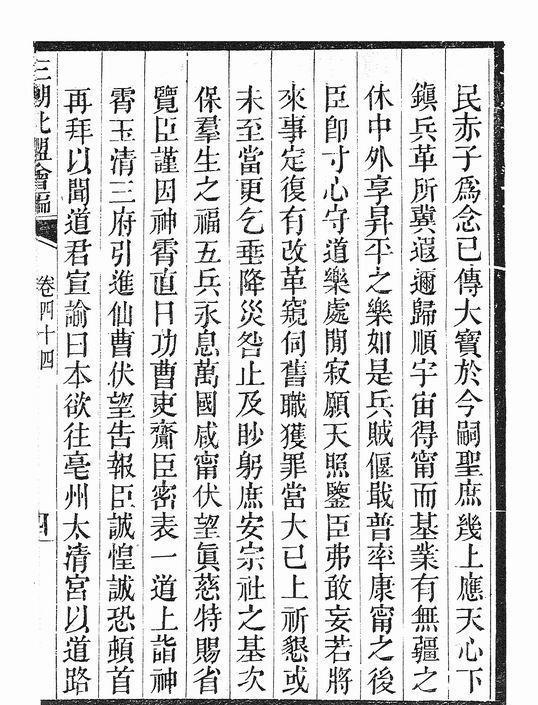 民赤子爲念已傳大寶於今嗣聖庶幾上應天心下
鎮兵革所冀遐邇歸順宇宙得甯而基業有無疆之
休中外享昇平之樂如是兵賊偃戢普率康甯之後
臣卽寸心守道樂處閒寂願天照鑒臣弗敢妄若將
來事定復有改革窺伺舊職獲罪當大已上祈懇或
未至當更乞垂降災咎止及眇躬庶安宗社之基次
保羣生之福五兵永息萬國咸甯伏望眞慈特賜省
覽臣謹因神霄直日功曹吏齎臣密表一道上詣神
霄玉清三府引進仙曹伏望告報臣誠惶誠恐頓首
再拜以聞道君宣諭曰本欲往亳州太清宮以道路
三朝北盟會編
卷四十四
四